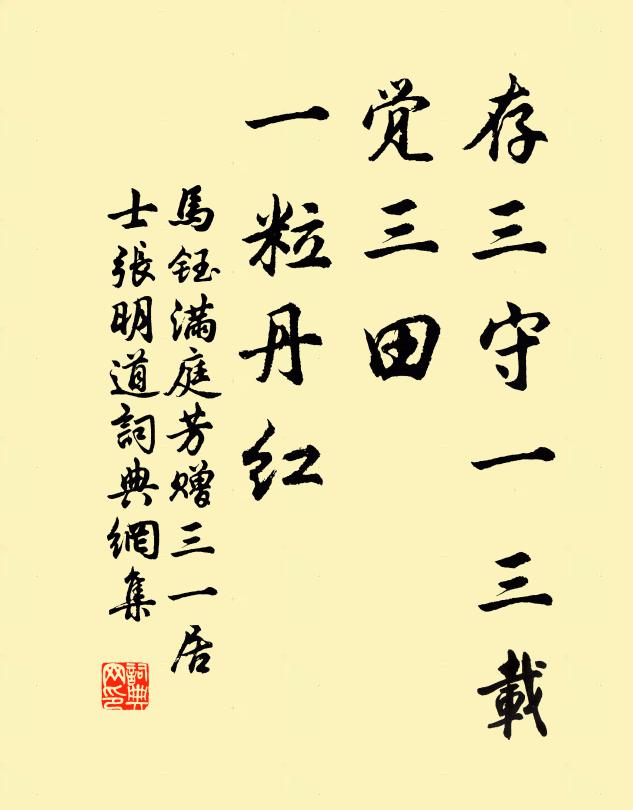 存三守一三載
覚三田
一粒丹红
馬鈺满庭芳赠三一居
士張明道詞典網集
詞典网印